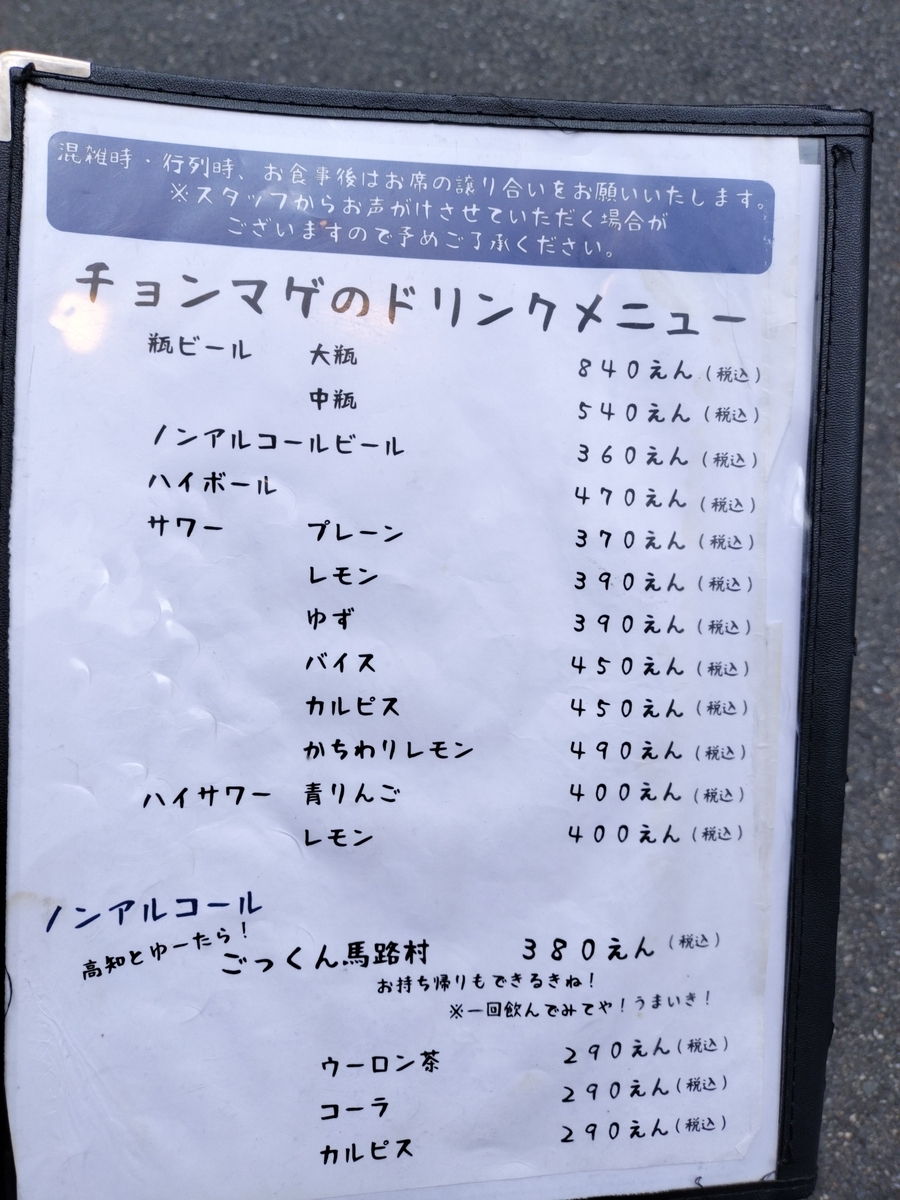 混雑時・行列時、お食事後はお席の譲り合いをお願いいたします。
※スタッフからお声がけさせていただく場合が
ございますので予めご了承ください。
チョンマゲのドリンクメニュー
瓶ビール 大瓶 840えん(税込)
中瓶 540えん(税込)
ノンアルコールビール 360えん(税込)
ハイボール 470えん(税込)
サワー プレーン 370えん(税込)
レモン 390えん(税込)
ゆず 390えん(税込)
バイス 450えん(税込)
カルピス 450えん(税込)
かちわりレモン 490えん(税込)
ハイサワー 青りんご 400えん(税込)
レモン 400えん(税込)
ノンアルコール
高知とゆーたら!
ごっくん馬路村 380えん(税込)
お持ち帰りもできるきね!
※一回飲んでみてや!うまいき!
ウーロン茶 290えん(税込)
コーラ 290えん(税込)
カルピス 290えん(税込)